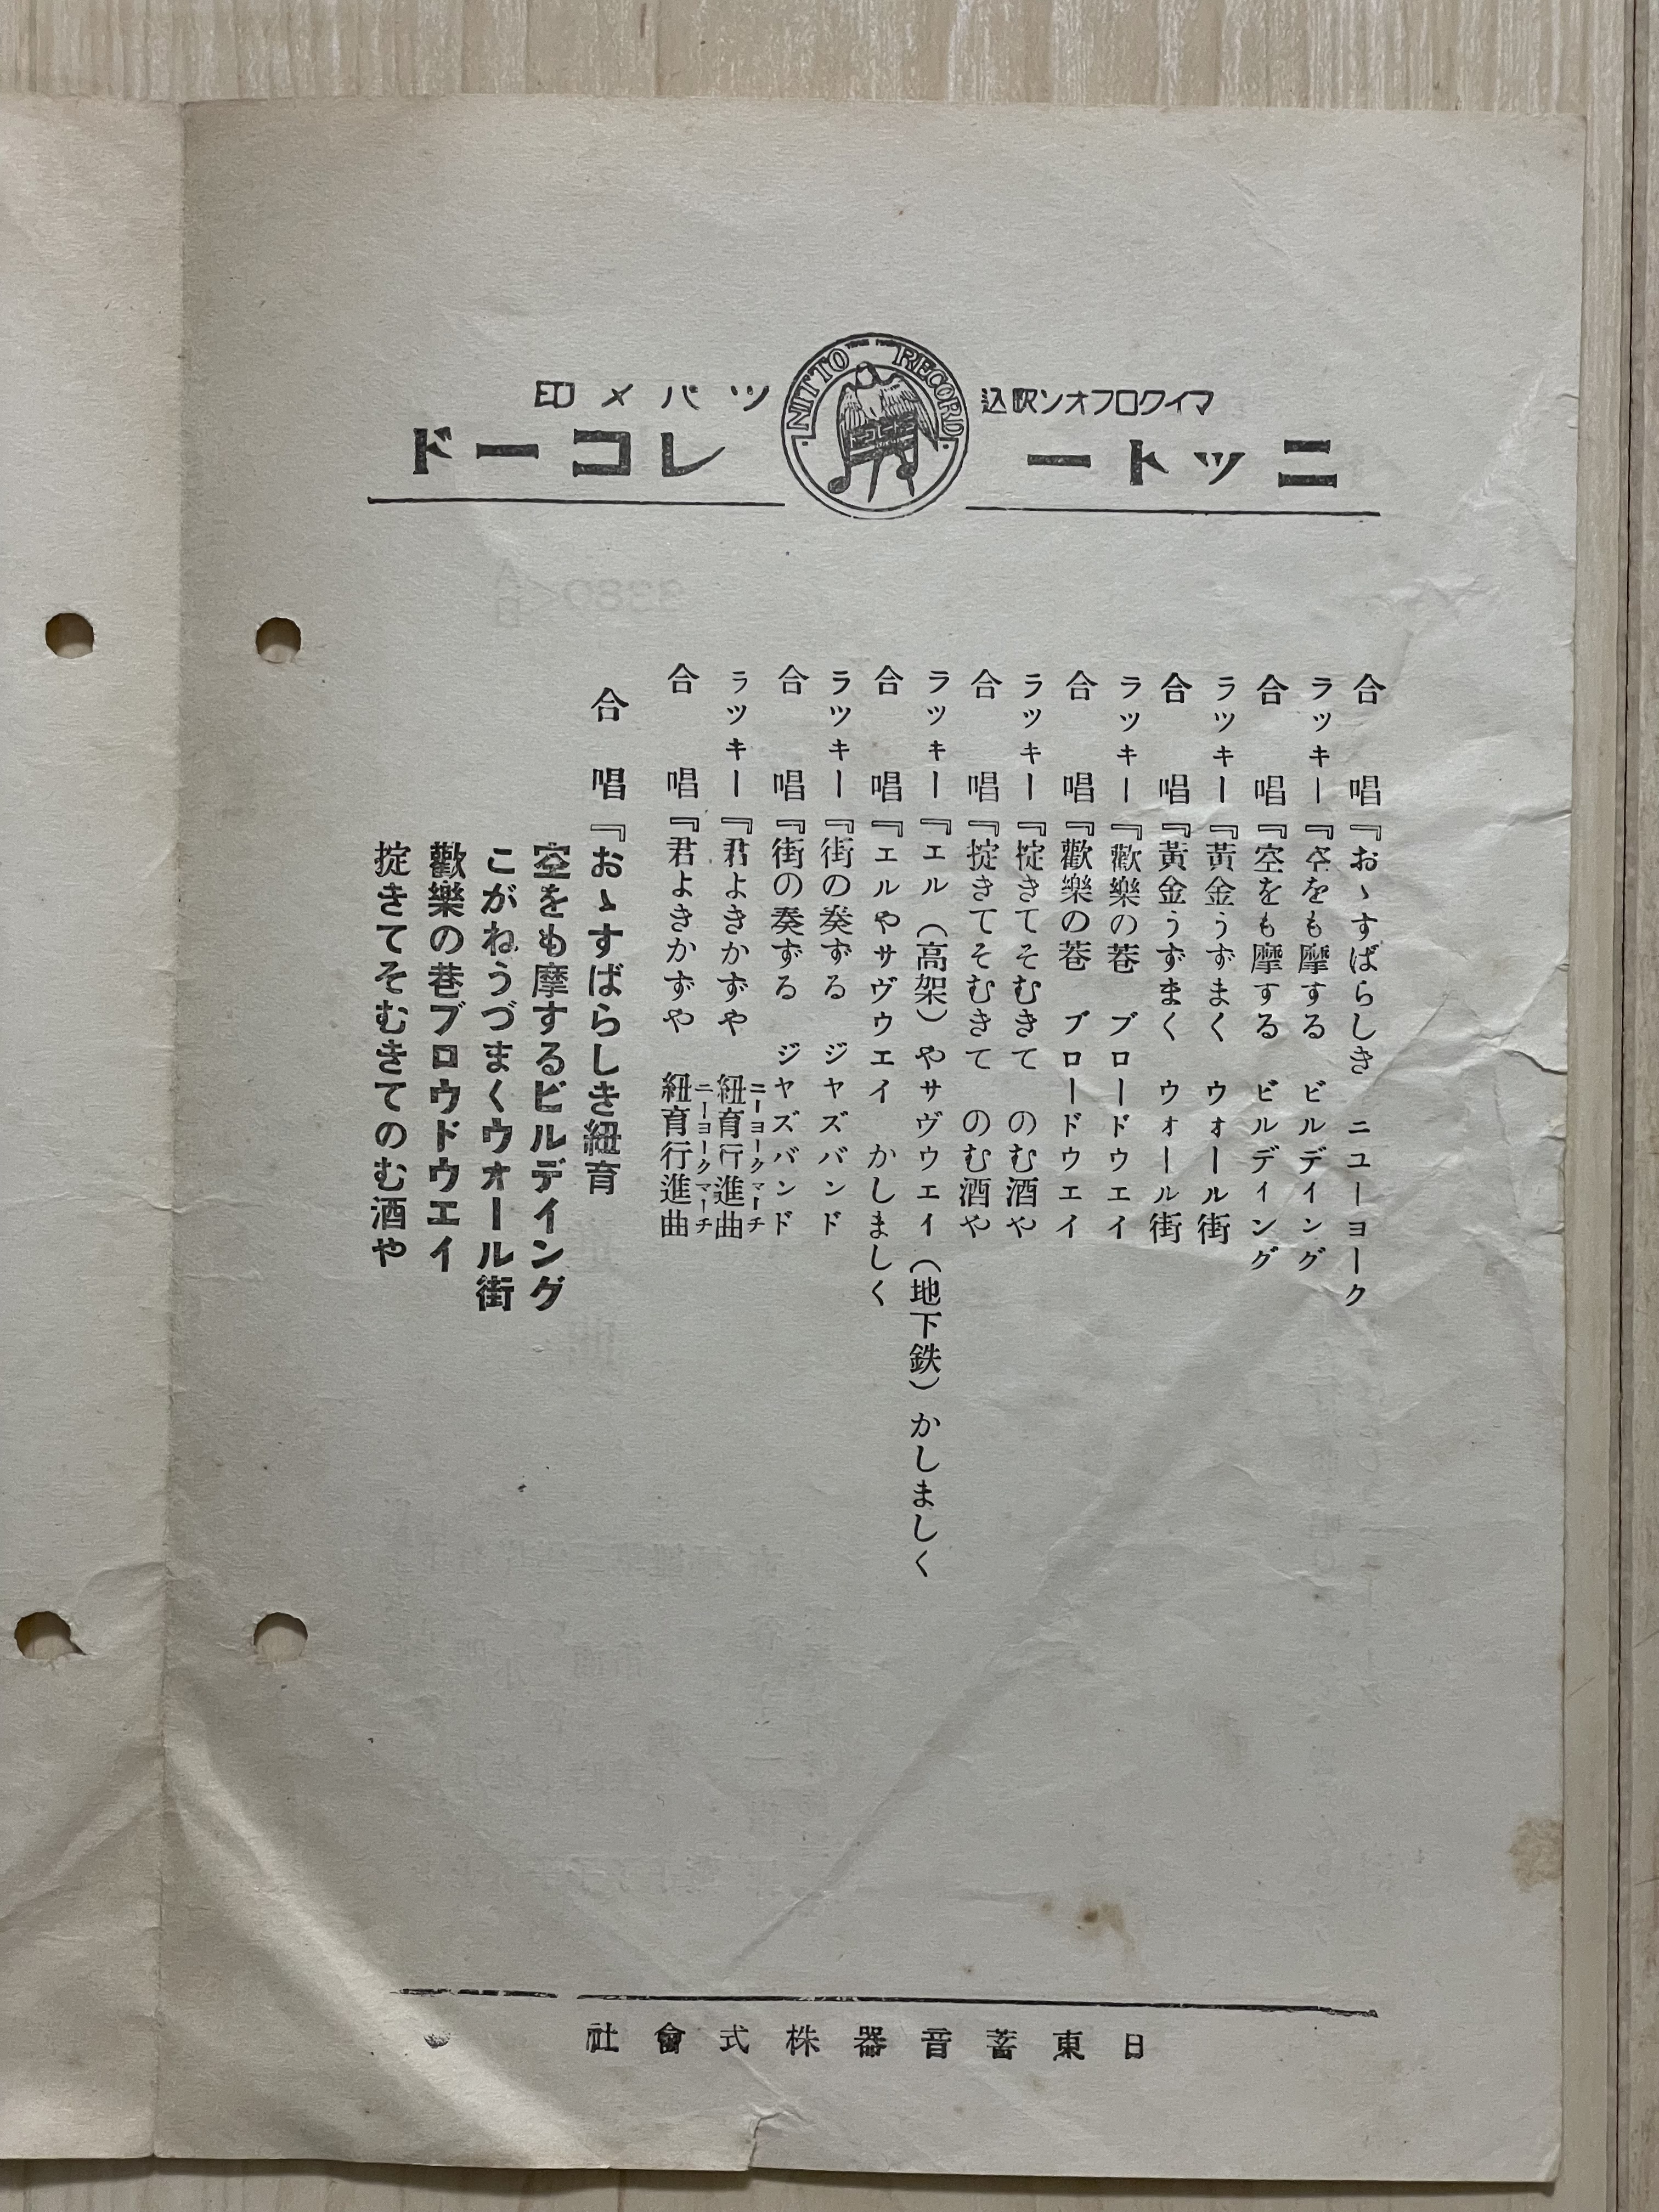 マイクロフオン吹込
ツバメ印
NITTO RECORD
ニットーレコード
合唱『おゝすばらしき ニユーヨーク
ラッキー『空をも摩する ビルディング
合唱『空をも摩する ビルディング
ラッキー『黄金うずまく ウォール街
合唱『黄金うずまく ウォール街
ラッキー『歡樂の巷 ブロードウエイ
合唱『歡樂の巷 ブロードウエイ
ラッキー『掟きてそむきて のむ酒や
合唱『掟きてそむきて のむ酒や
ラッキー『エル(高架)やサヴウエイ(地下鉄)かしましく
合唱『エルやサヴウエイ かしましく
ラッキー『街の奏ずる ジヤズバンド
合唱『街の奏ずる ジヤズバンド
ラッキー『君よきかずや 紐育行進曲
ニーヨークマーチ
合唱『君よきかずや 紐育行進曲
ニーヨークマーチ
合唱『おゝすばらしき紐育
空をも摩するビルデイング
こがねうづまくウォール街
歡樂の巷ブロウドウエイ
掟きてそむきてのむ酒や
日東蓄音器株式會社